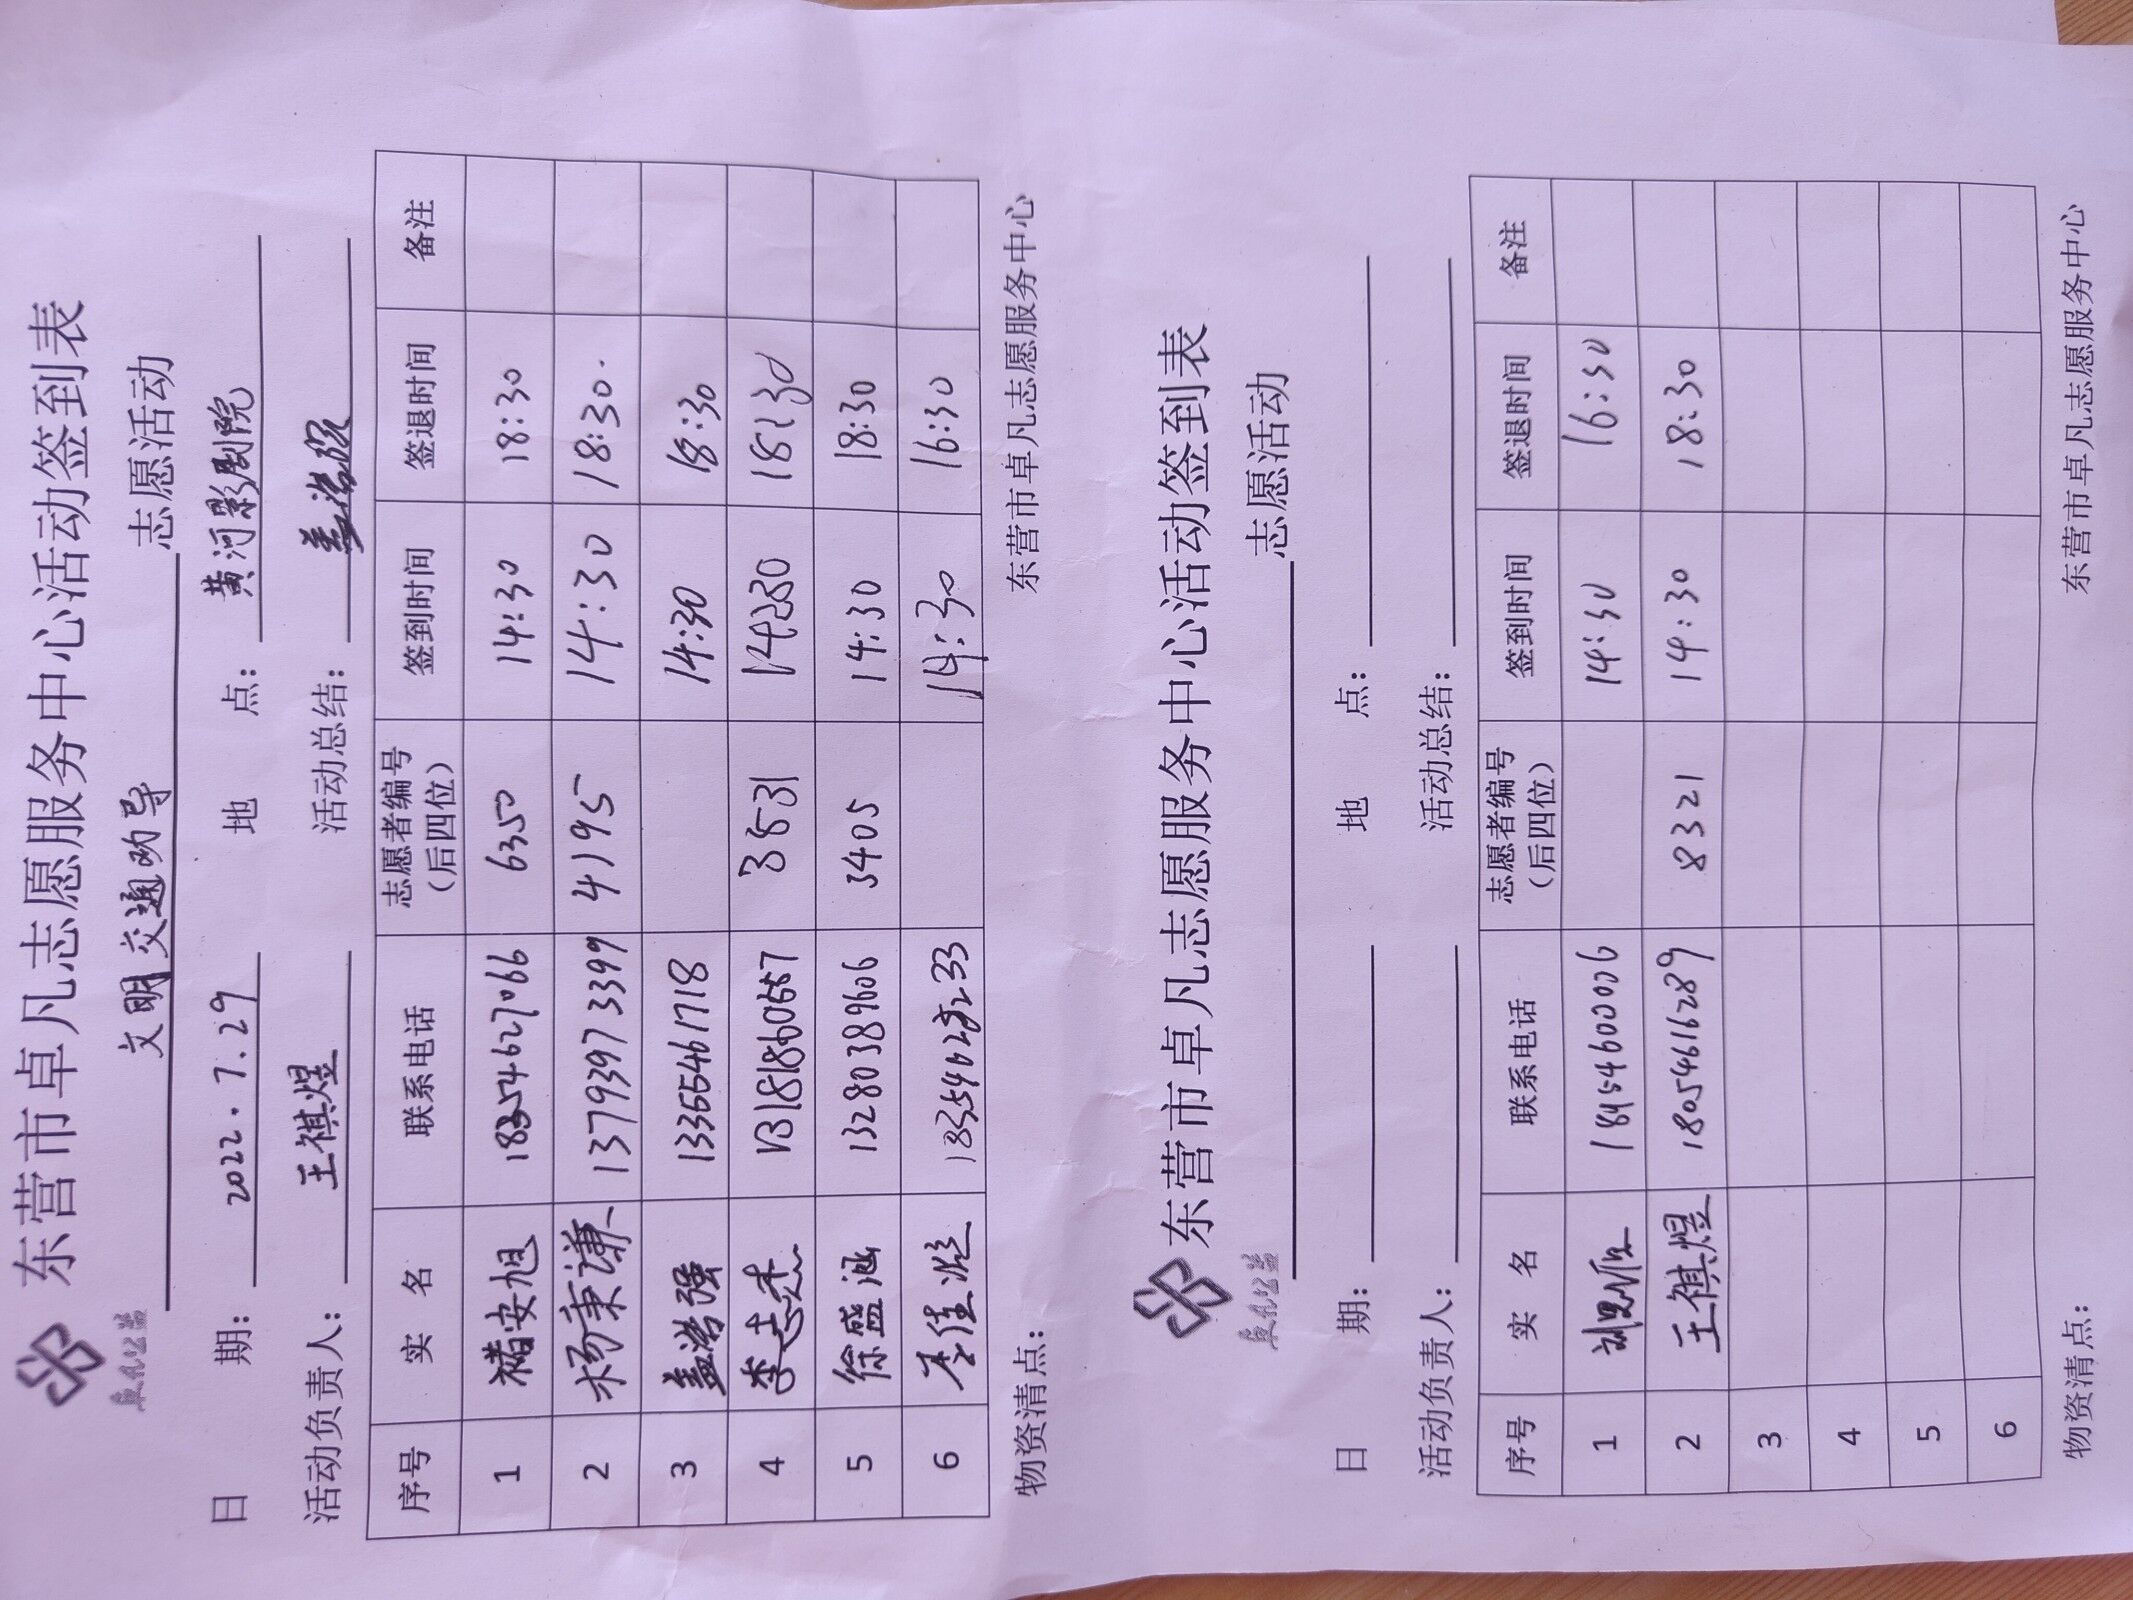 东营市卓凡志愿服务中心活动签到表
卓凡公益
文明交通劝导 志愿活动
日 期: 2022.7.29 地 点: 黄河影剧院
活动负责人: 王祺煜 活动总结: 盖浩强
序号 实 名 联系电话 志愿者编号（后四位） 签到时间 签退时间 备注
1 褚安旭 18254627066 6350 14:30 18:30
2 杨秉谦 13793973399 4195 14:30 18:30.
3 盖浩强 13365461718 14:30 18:30
4 李志杰 3831 14:30 18:30
5 徐盛涵 13280389606 3405 14:30 18:30
6 李佳 14:30 16:30
物资清点: 东营市卓凡志愿服务中心
东营市卓凡志愿服务中心活动签到表
卓凡公益
志愿活动
日 期: 地 点:
活动负责人: 活动总结:
序号 实 名 联系电话 志愿者编号（后四位） 签到时间 签退时间 备注
1 14:30 16:30
2 王祺煜 18054616289 8321 14:30 18:30
3
4
5
6
物资清点: 东营市卓凡志愿服务中心